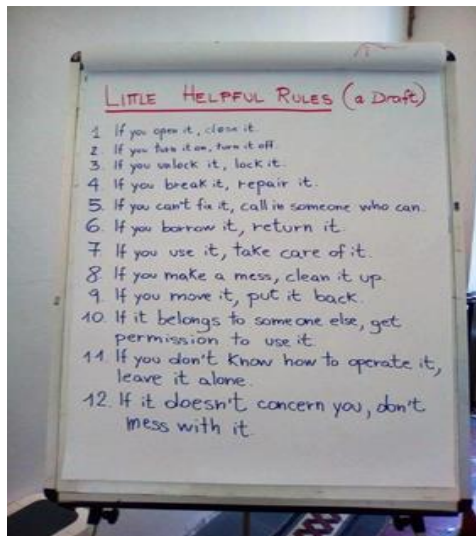 LITTLE HELPFUL RULES (a Draft)
1 If you open it, close it.
2. If you turn it on, turn it off.
3. If you unlock it, lock it.
4 If you break it, repair it.
5. If you can't fix it, call in someone who can.
6. If you borrow it, return it.
7 If you use it, take care of it.
8 If you make a mess, clean it up.
9. If you move it, put it back.
10. If it belongs to someone else, get
permission to use it.
11. If you don't know how to operate it,
leave it alone.
12. If it doesn't concern you, don't
mess with it.